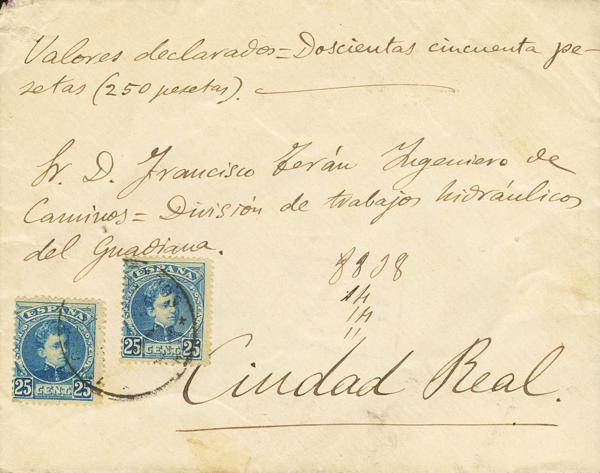 Valores declarados = Doscientas cincuenta pe-
setas (250 pesetas).
Sr. D. Francisco Terán Ingeniero de
Caminos = División de trabajos hidráulicos
del Guadiana.
Ciudad Real.
ESPAÑA
25 CENT. 25
ESPAÑA
25 CENT. 25